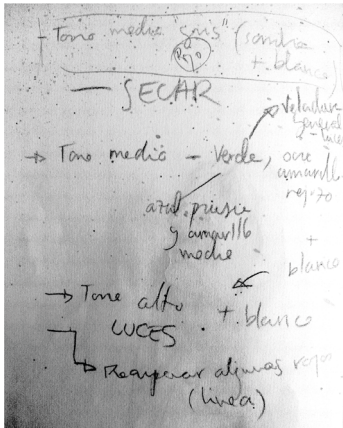 - Tono medio gris" (sombra
+ blanco)
Rojo
— SECAR
Veladura
general
luces
→ Tono medio - Verde, ocre
amarillo
rojizo
azul prusia
y amarillo
medio
+
blanco
→ Tono alto + blanco
LUCES
→ Recuperar algunas rojos
(linea)